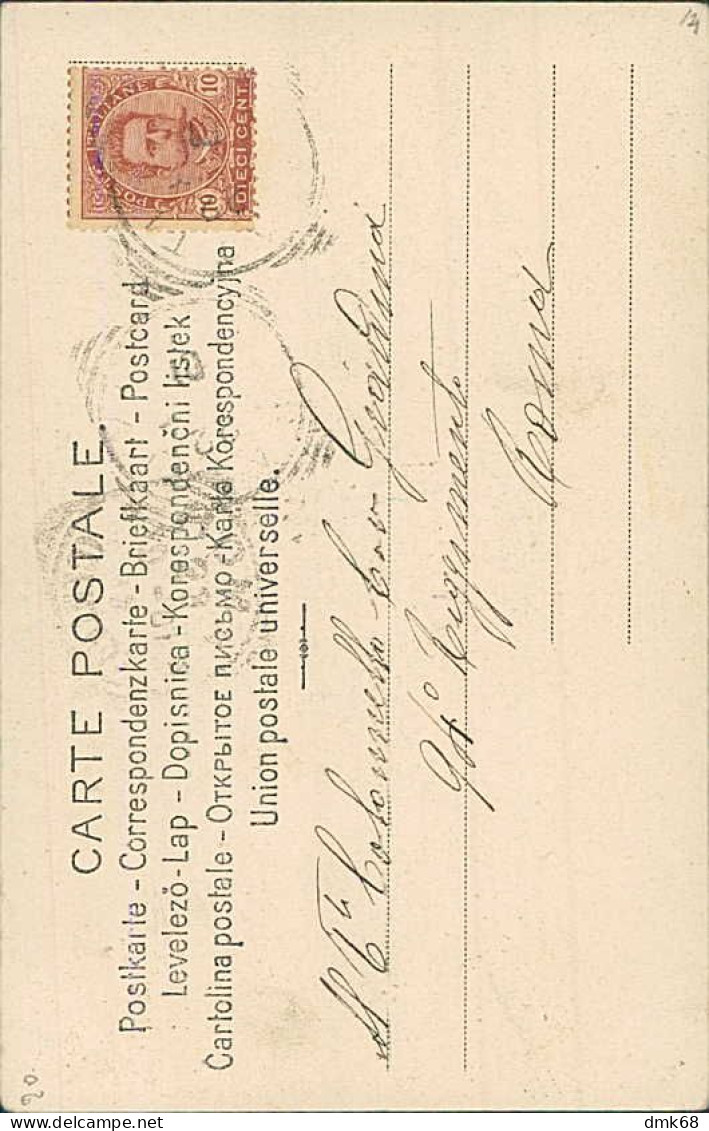 CARTE POSTALE.
Postkarte - Correspondenzkarte - Briefkaart - Postcard
Levelező-Lap - Dopisnica - Korespondenční lístek
Cartolina postale - Открытое письмо - Karta Korespondencyjna
Union postale universelle.
POSTE ITALIANE
10 10
DIECI CENT.
Al Tte Colonnello Cav
94° Reggimento
Roma
20.
delcampe.net
dmk68